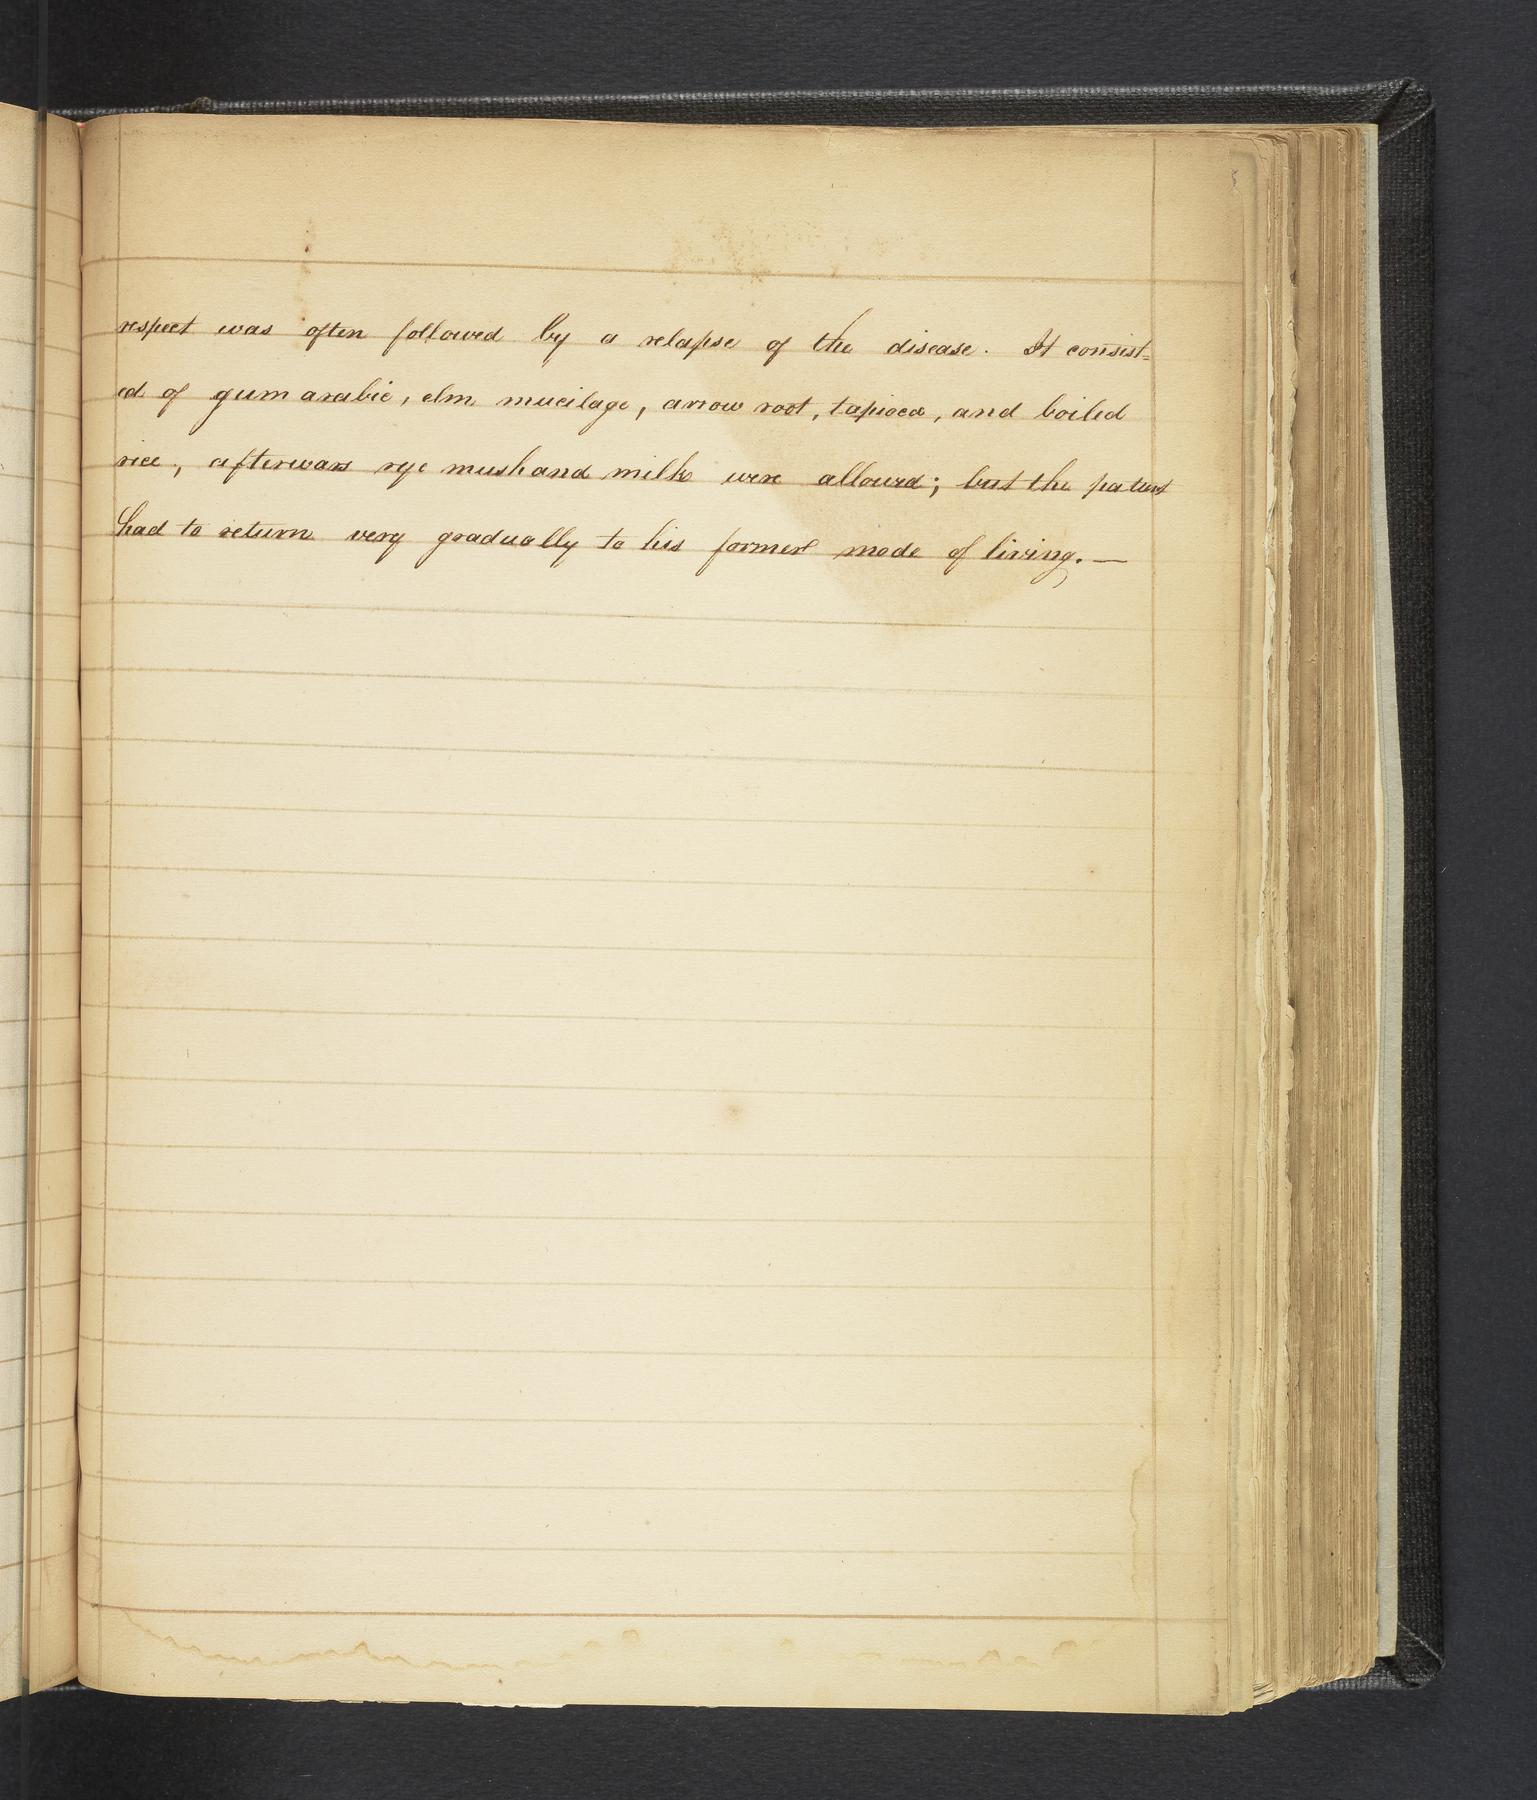 respect was often followed by a relapse of the disease. It consist=
ed of gum arabic, elm mucilage, arrow root, tapioca, and boiled
rice, afterwars rye mush and milk were allowed; but the patient
had to return very gradually to his former mode of living. —